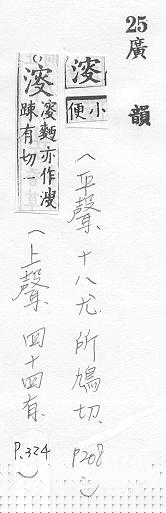 25廣韻
溲小便
(平聲、十八尤、所鳩切、P.208)
溲溲麪亦作溲踈有切一
(上聲、四十四有、P.324)